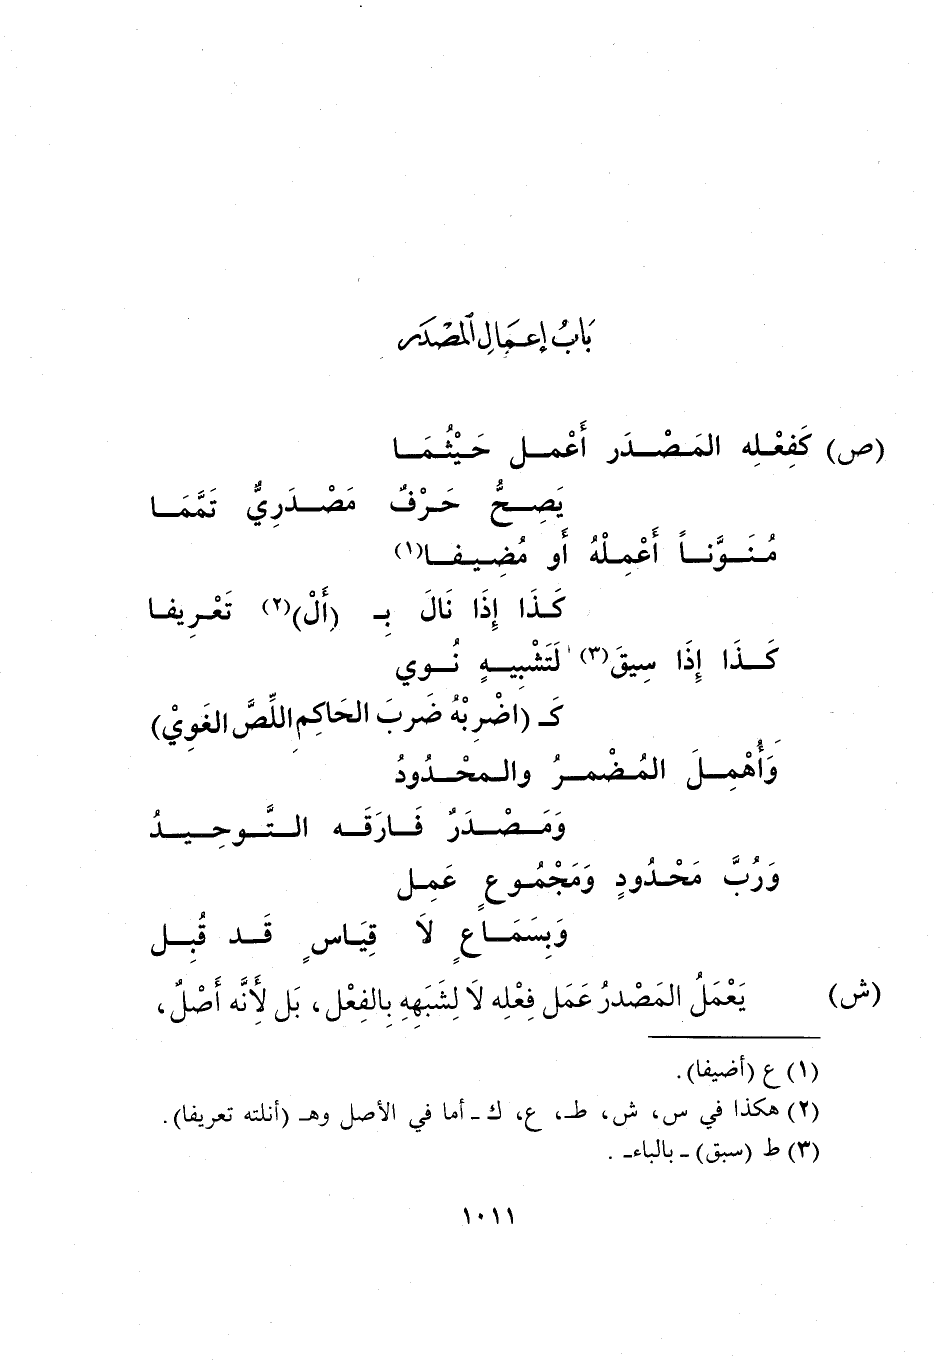 بَابُ إعمَالِ المَصْدَر
(ص) كَفِعْلِه المَصْدَر أَعْمل حَيْثُمَا
يَصِحُّ حَرْفٌ مَصْدَرِيٌّ تَمَّمَا
مُنَوَّناً أَعْمِلْهُ أَو مُضِيفا(١)
كَذَا إِذَا نَالَ بِـ (أَلْ)(٢) تَعْرِيفا
كَذَا إِذَا سِيقَ(٣) لَتَشْبِيهٍ نُوي
كـ (اضْرِبْهُ ضَربَ الحَاكِمِ اللِّصَّ الغَوِيْ)
وَأُهْمِلَ المُضْمرُ والمحْدُودُ
وَمَصْدَرٌ فَارَقَه التَّوحِيدُ
وَرُبَّ مَحْدُودٍ وَمَجْمُوعٍ عَمِل
وَبِسَمَاعٍ لاَ قِيَاسٍ قَد قُبِل
(ش) يَعْمَلُ المَصْدرُ عَمَل فِعْلِه لَا لِشَبَهِهِ بِالفِعْل، بَل لأَنَّه أَصْلٌ،
(١) ع (أضيفا).
(٢) هكذا في س، ش، ط، ع، ك ـ أما في الأصل وهـ (أنلته تعريفا).
(٣) ط (سبق) ـ بالباء ـ.
١٠١١